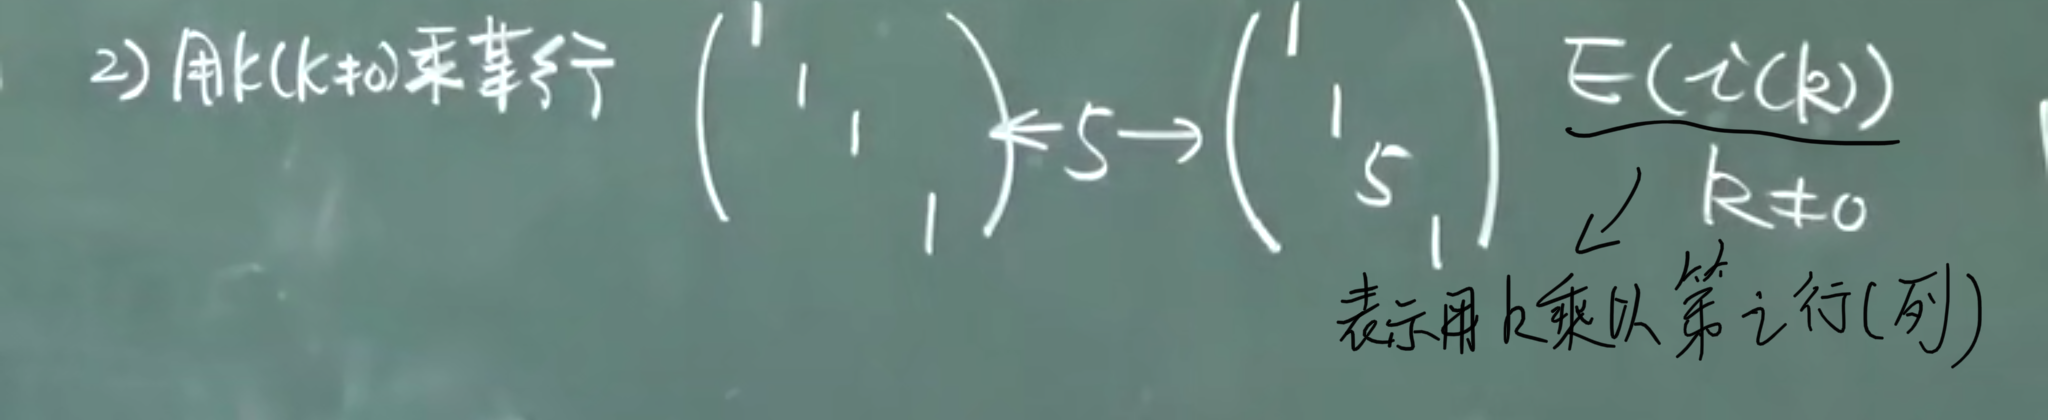 2) 用k(k≠0)乘某行 (1 1 1 1) ←5→ (1 1 5 1) E(i(k))
k≠0
表示用k乘以第i行(列)